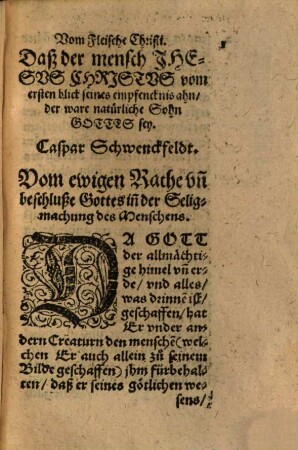 Vom Fleische Christi.
Daß der mensch JHE-
SVS CHRISTVS vom
ersten blick seines empfencknis ahn/
der ware natürliche Sohn
GOTTS sey.
Caspar Schwenckfeldt.
Vom ewigen Rathe vñ
beschluße Gottes iñ der Selig-
machung des Menschens.
DA GOTT
der allmächti-
ge himel vñ er-
de/ vnd alles/
was deinnẽ ist/
geschaffen/ hat
Er vnder an-
dern Creaturn den menschẽ (wel-
chen Er auch allein zů seinem
Bilde geschaffen) jhm fürbehal-
ten/ daß er seines götlichen we-
sens/